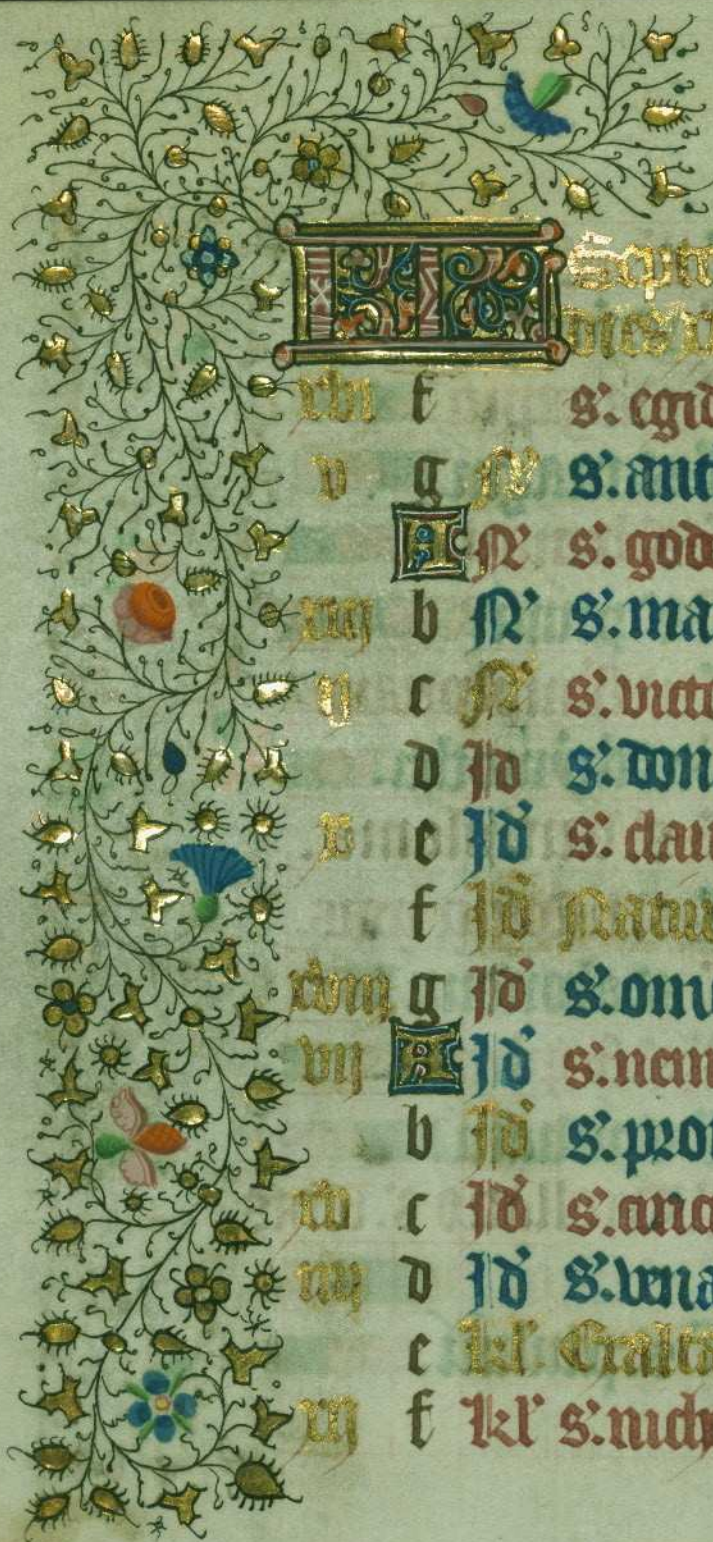 KL Septe
dies x
xvi f s'. egid
v g N' s'. ant
A N' s'. gode
xiij b N' s'. ma
ij c N' s'. victo
d Id s'. don
x e Id s'. clau
f Id Natiui
xviij g Id s'. om
vij A Id s'. nem
b Id s'. pro
xv c Id s'.
iiij d Id s'. vena
e kl' Exalta
xij f kl' s'. nich